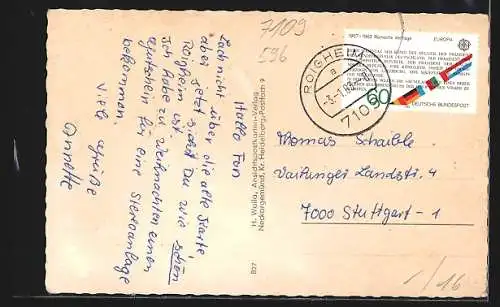 7109
596
Hallo Fan
Lach nicht über die alte Karte
aber jetzt siehst Du wie schön
Roigheim ist.
Ich habe zu Weihnachten einen
Gutschein für eine Stereoanlage
bekommen.
Viele Grüße
Annette
H. Walla, Ansichtspostkarten-Verlag
Neckargemünd, Kr. Heidelberg, Postfach 9
B27
1957-1982 Römische Verträge
EUROPA
60
DEUTSCHE BUNDESPOST
ROIGHEIM
a
-3.-1.83
710
Thomas Schaible
Vaihinger Landstr. 4
7000 Stuttgart-1
1/16